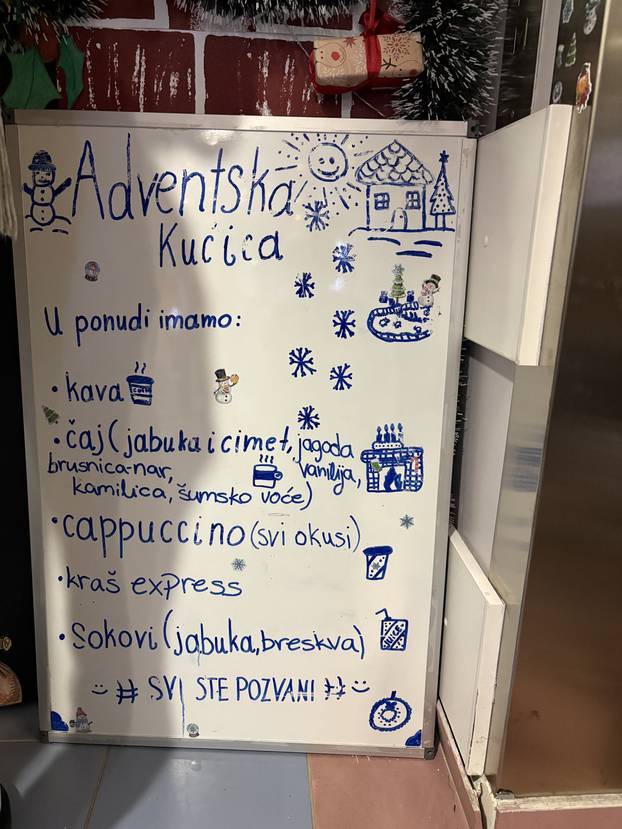 Adventska
Kućica
U ponudi imamo:
• kava
• čaj (jabuka i cimet, jagoda
vanilija,
brusnica-nar,
kamilica, šumsko voće)
• cappuccino (svi okusi)
• kraš express
• sokovi (jabuka, breskva)
# SVI STE POZVANI #